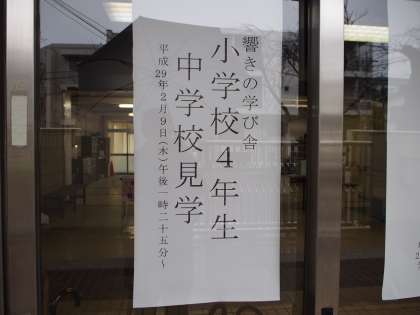 響きの学び舎
小学校4年生
中学校見学
平成29年2月9日(木)午後一時二十五分~